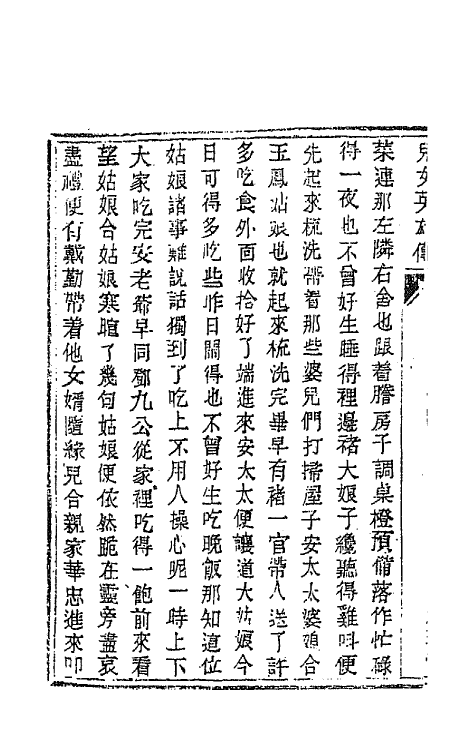 兒女英雄傳
菜連那左隣右舍也跟着謄房子調桌櫈預備落作忙碌
得一夜也不曾好生睡得裡邊褚大娘子纔聽得雞呌便
先起來梳洗帶着那些婆兒們打掃屋子安太太婆媳合
玉鳳姑娘也就起來梳洗完畢早有褚一官帶人送了許
多吃食外面收拾好了端進來安太太便讓道大姑娘今
日可得多吃些昨日鬧得也不曾好生吃晚飯那知這位
姑娘諸事難說話獨到了吃上不用人操心呢一時上下
大家吃完安老爺早同鄧九公從家裡吃得一飽前來看
望姑娘合姑娘寒暄了幾句姑娘便依然跪在靈旁盡哀
盡禮便有戴勤帶着他女婿隨緣兒合親家華忠進來叩